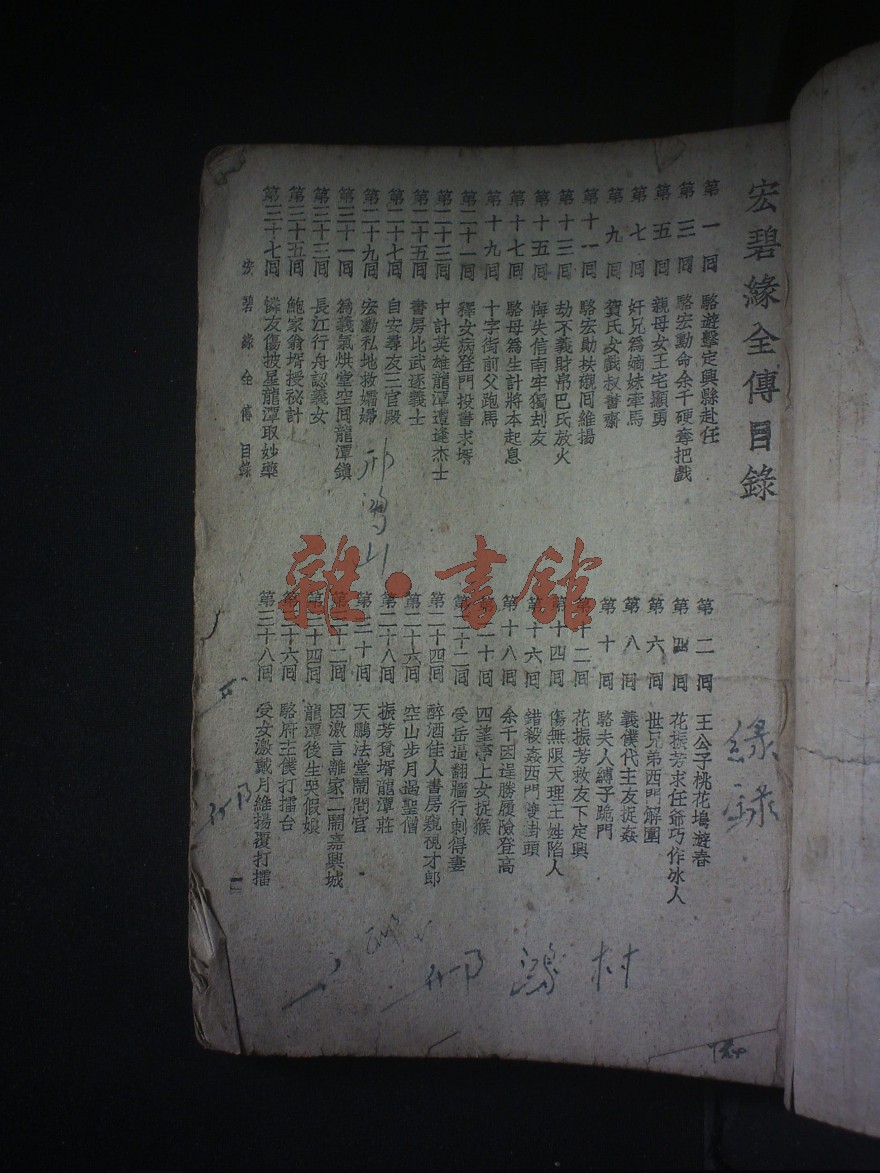 宏碧緣全傳目錄
第一囘 駱遊擊定興縣赴任
第二囘 王公子桃花塢遊春
第三囘 駱宏勛命余千硬奪把戲
第四囘 花振芳求任爺巧作冰人
第五囘 親母女王宅顯勇
第六囘 世兄弟西門解圍
第七囘 奸兄爲嫡妹牽馬
第八囘 義僕代主友捉姦
第九囘 賀氏女戲叔書齋
第十囘 駱夫人縛子跪門
第十一囘 駱宏勛扶櫬囘維揚
第十二囘 花振芳救友下定興
第十三囘 劫不義財帛巴氏放火
第十四囘 傷無限天理王姓陷人
第十五囘 悔失信南牢獨刦友
第十六囘 錯殺姦西門雙掛頭
第十七囘 駱母爲生計將本起息
第十八囘 余千因逞勝履險登高
第十九囘 十字街前父跑馬
第二十囘 四望亭上女捉猴
第二十一囘 釋女病登門投書求壻
第二十二囘 受岳逼翻牆行刺得妻
第二十三囘 中計英雄龍潭遭逢杰士
第二十四囘 醉酒佳人書房窺視才郎
第二十五囘 書房比武逐義士
第二十六囘 空山步月遇聖僧
第二十七囘 自安尋友三官殿
第二十八囘 振芳覓壻龍潭莊
第二十九囘 宏勳私地救孀婦
第三十囘 天鵬法堂鬧問官
第三十一囘 爲義氣烘堂空囘龍潭鎭
第三十二囘 因激言離家二鬧嘉興城
第三十三囘 長江行舟認義女
第三十四囘 龍潭後生哭假娘
第三十五囘 鮑家翁壻授祕計
第三十六囘 駱府主僕打擂台
第三十七囘 憐友傷披星龍潭取妙藥
第三十八囘 受女激戴月維揚覆打擂
宏碧緣全傳 目錄
一
緣錄
邢鴻村
雜·書館